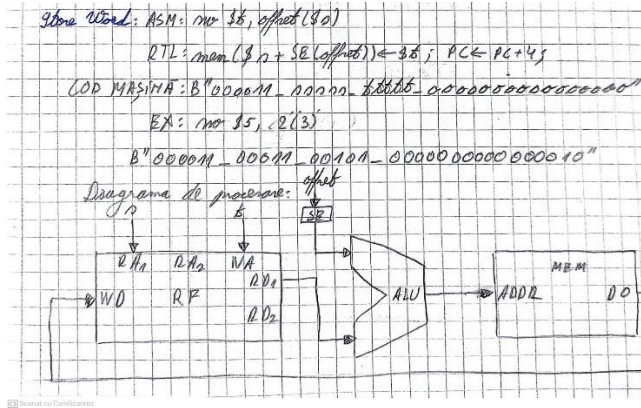 Store Word: ASM: sw $t, offset($s)
RTL: mem($s + SE(offset)) ← $t; PC ← PC+4;
COD MAȘINĂ: B"000011_sssss_ttttt_oooooooooooooooo"
EX: sw $5, 2(3)
B"000011_00011_00101_0000000000000010"
Diagrama de procesare: offset
s t SE
RA1 RA2 WA
RD1
WD RF
RD2
ALU
MEM
ADDR DO
Scanat cu CamScanner